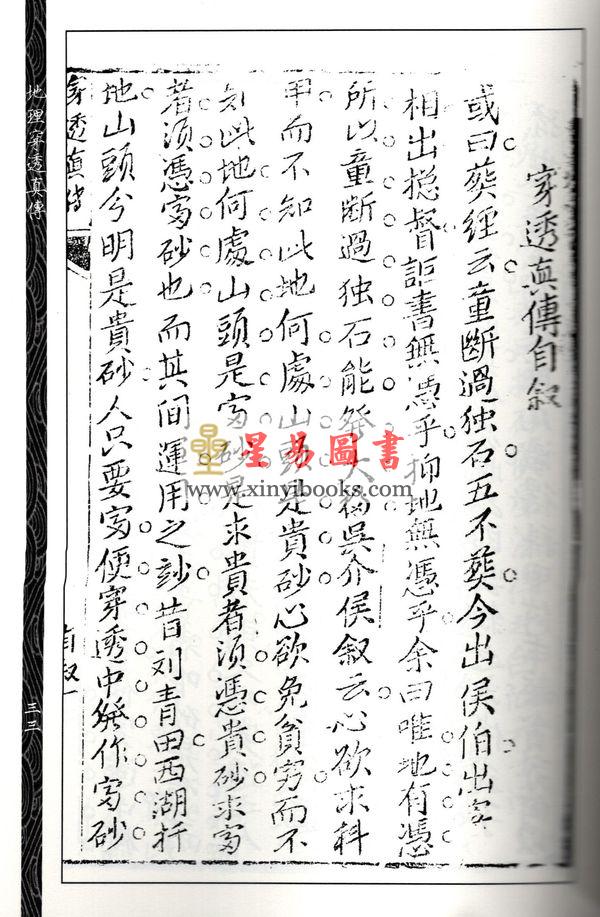 穿透真傳自叙
或曰葬經云童斷過独石五不葬今出侯伯出宰
相出捴督詎書無憑乎抑地無憑乎余曰唯地有憑
所以童斷過独石能發大福吳介侯叙云心欲求科
甲而不知此地何處山頭是貴砂心欲免貧穷而不
知此地何處山頭是富砂是求貴者須憑貴砂求富
者須憑富砂也而其間運用之訣昔刘青田西湖扦
地山頭分明是貴砂人只要富便穿透中發作富砂
穿透真傳
自叙一
地理穿透真傳
三三
星易圖書
www.xinyibooks.com